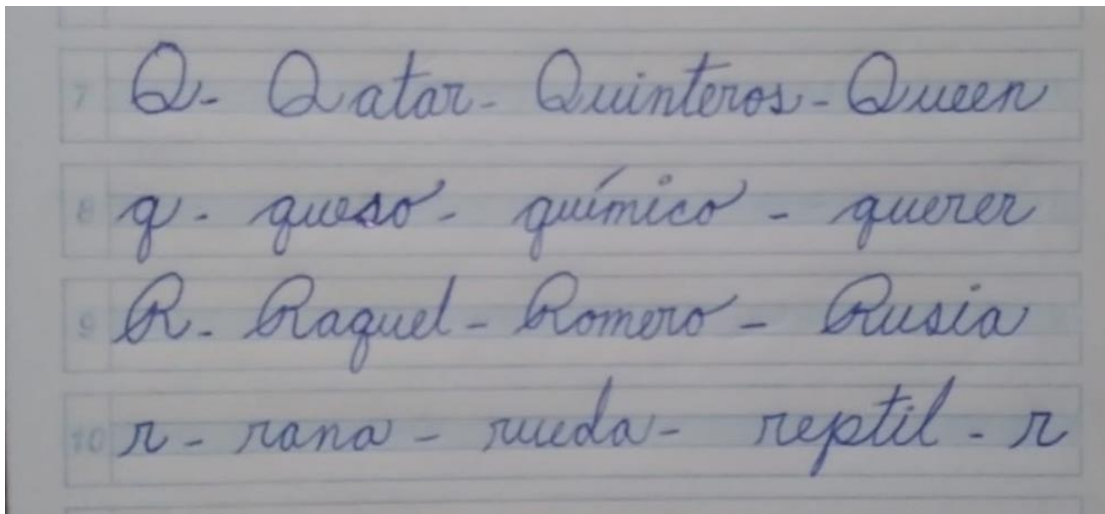 7 Q - Qatar - Quinteros - Queen
8 q - queso - químico - querer
9 R - Raquel - Romero - Rusia
10 r - rana - rueda - reptil - r